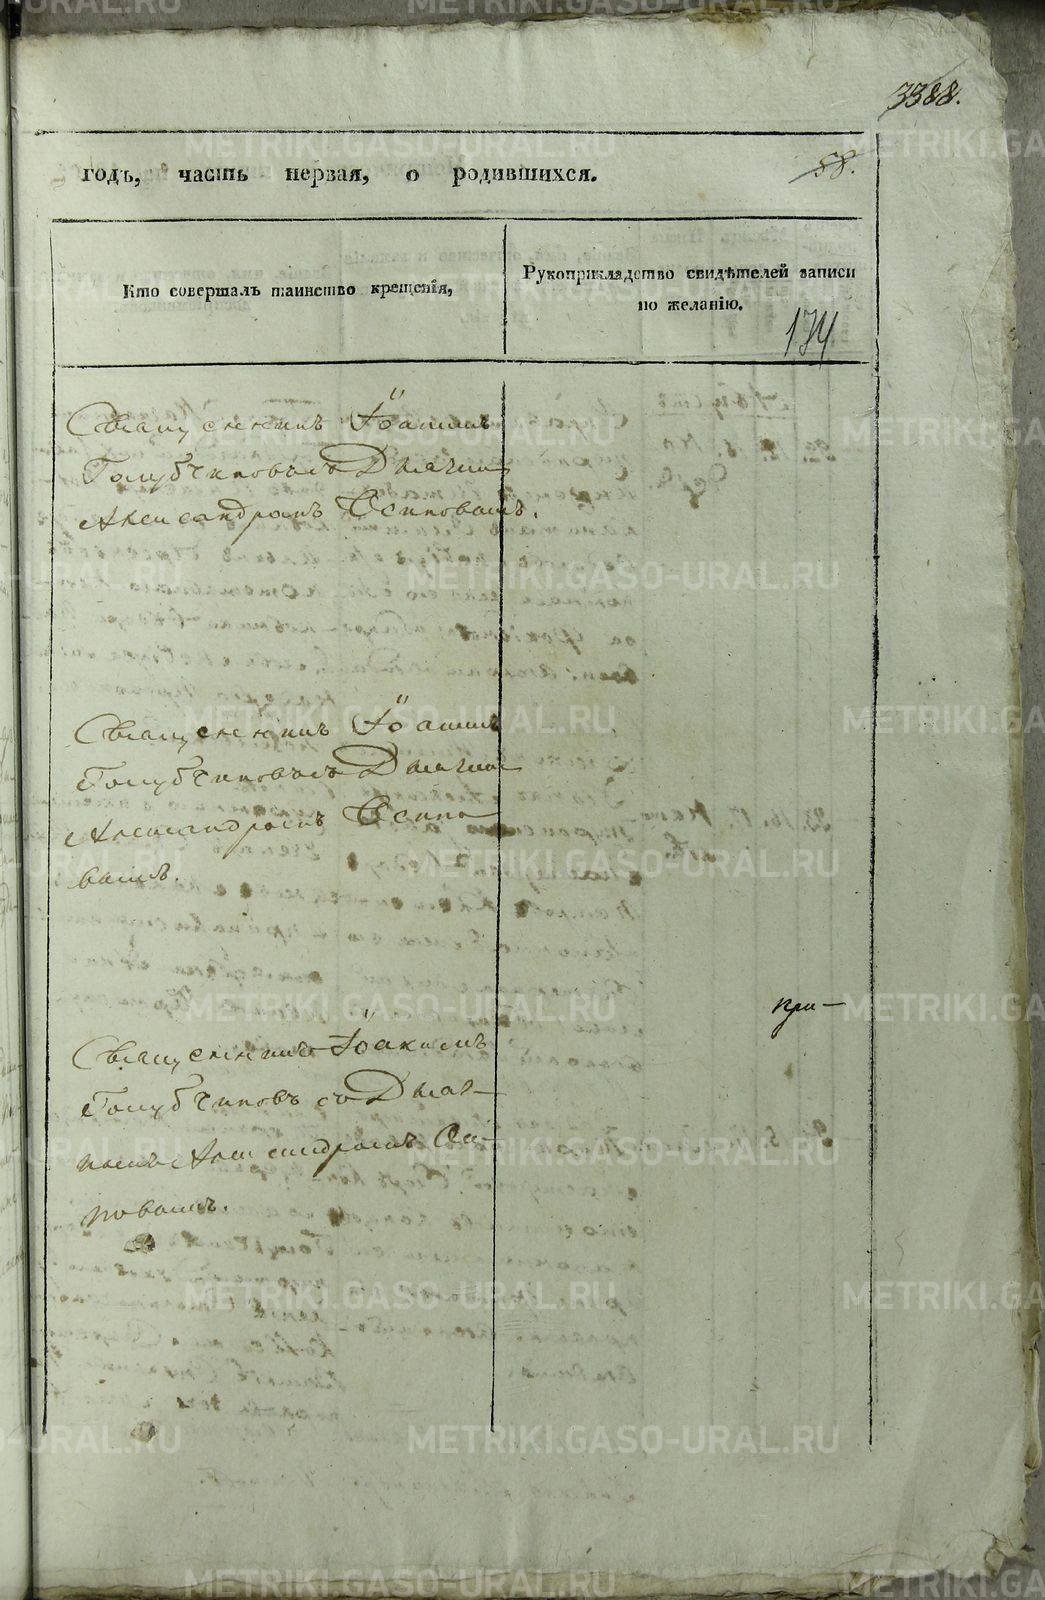 3388.
годъ, часть первая, о родившихся.
58.
Кто совершалъ таинство крещенія,
Рукоприкладство свидѣтелей записи
по желанію.
174
Священникъ Іоакимъ
Голубчиковъ съ Дьячко
Александромъ Осиповымъ.
Священникъ Іоакимъ
Голубчиковъ съ Дьячко
Александромъ Осипо
вымъ.
при—
Священникъ Іоакимъ
Голубчиковъ со Дьяч—
комъ Александромъ Оси—
повымъ.
METRIKI.GASO-URAL.RU